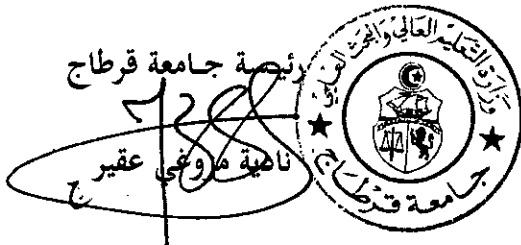 رئيسة جامعة قرطاج
نادية مزوغي عقير
وزارة التعليم العالي والبحث العلمي
جامعة قرطاج